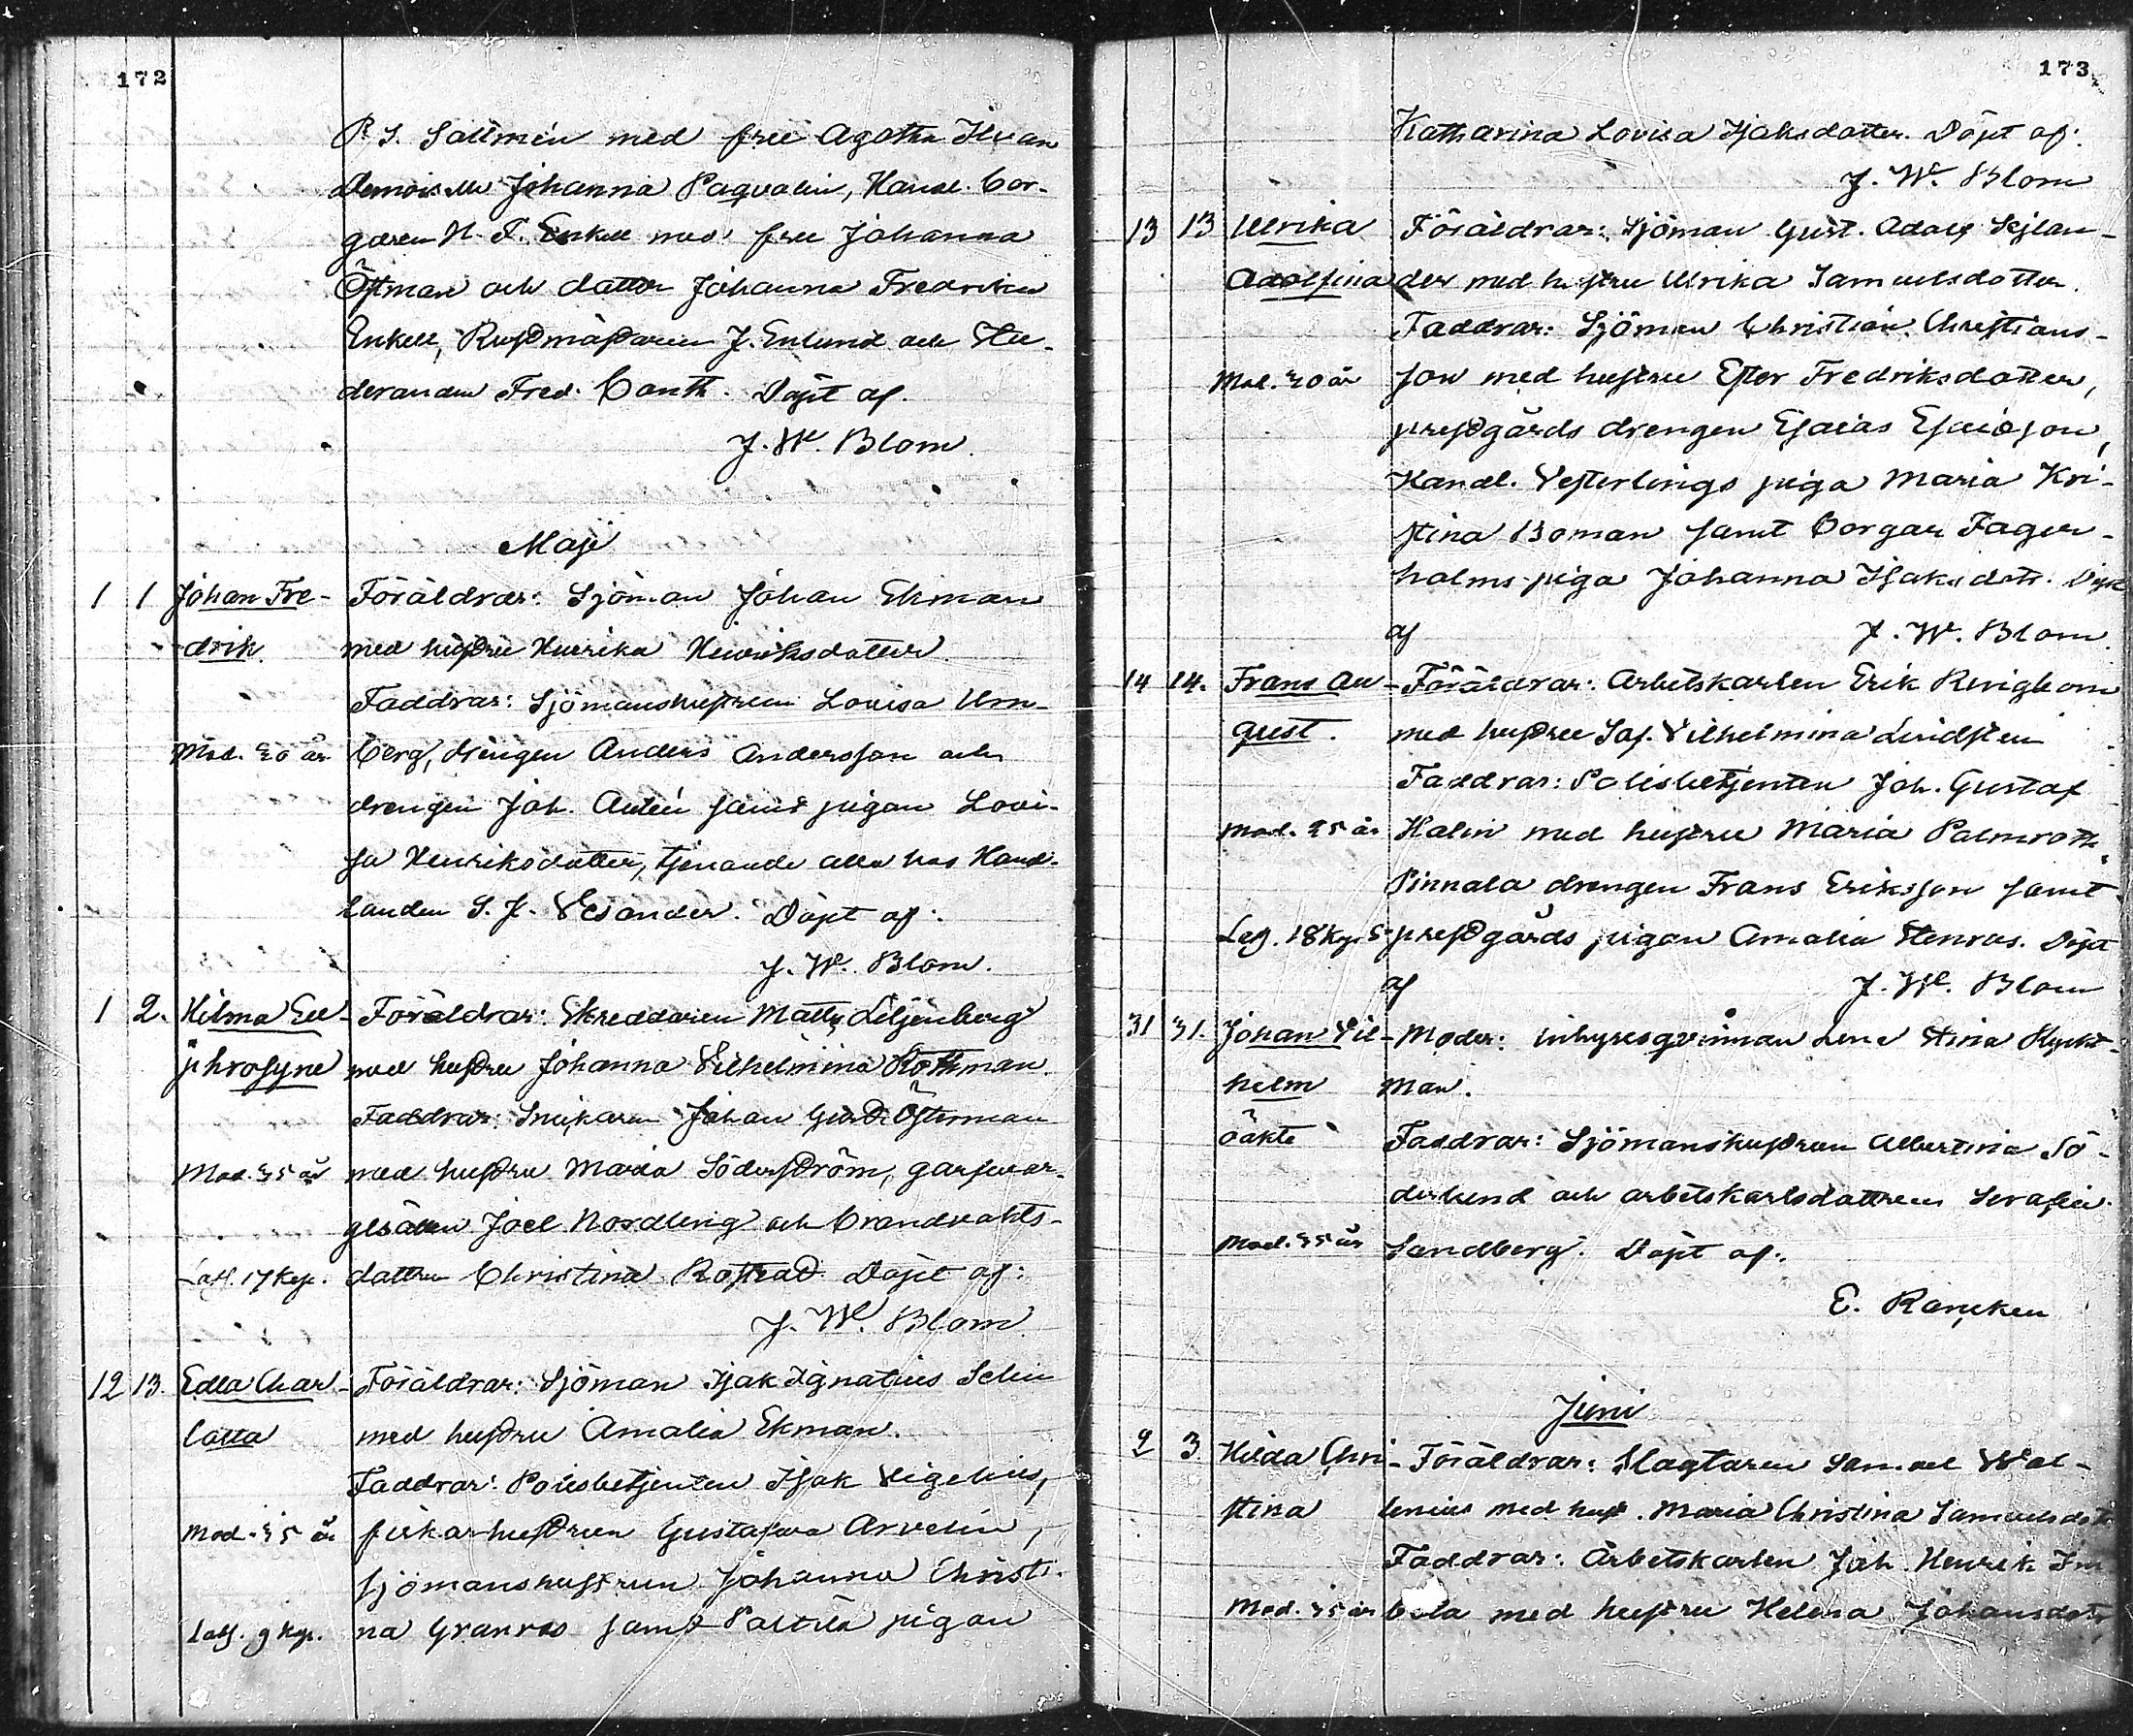 172
P. S. Sallmén med fru Agatha
Demoiselle Johanna Paqvalin, Handl. bor-
garen H. F. Enkell med fru Johanna
Östman och dotter Johanna Fredrika
Enkell, Rustmästaren J. Enlund och Stu-
deranden Fred. Canth. Döpt af.
J. W. Blom.
Maji
1 1 Johan Fre- Föräldrar: Sjöman Johan Ekman
drik. med hustru Henrika Henriksdotter
Faddrar: Sjömanshustrun Lovisa Um-
Mod. 30 år berg, drengen Anders Andersson och
drengen Joh. Antén samt pigan Lovi-
sa Henriksdotter, tjenande alla hos Hand-
landen S. J. Vesander. Döpt af:
J. W. Blom.
1 2. Hilma Eu- Föräldrar: Skreddaren Matts Liljenberg
phrosyne med hustru Johanna Vilhelmina Rothman.
Faddrar: Snikaren Johan Gust. Österman
Mod. 35 år med hustru Maria Söderström, garfvar-
gesällen Joel Nordling och brandvakts-
Latf. 17 Kp. dottren Christina Rostedt. Döpt af:
J. W. Blom
12 13. Edla Char- Föräldrar: Sjöman Isak Ignatius Selin
lotta med hustru Amalia Ekman.
Faddrar: Polisbetjenten Isak Vigelius,
Mod. 35 år fiskarhustrun Gustafava Arvelin,
sjömanshustrun Johanna Christi-
Latf. 9 Kp. na Granroos samt Palttila pigan
173
Katharina Lovisa Isaksdotter. Döpt af:
J. W. Blom
13 13 Ulrika Föräldrar: Sjöman Gust. Adolf Sejlan-
Adolfina der med hustru Ulrika Samuelsdotter.
Faddrar: Sjöman Christian Christians-
Mod. 30 år son med hustru Ester Fredriksdotter,
prestgårds drengen Esaias Esaiasson,
Handl. Vesterlings piga Maria Kri-
stina Boman samt borgar Fager-
holms piga Johanna Isaksdotr. Döpt
af J. W. Blom.
14 14. Frans Au- Föräldrar: Arbetskarlen Erik Ringbom
gust. med hustru Sof. Vilhelmina Lindsten
Faddrar: Polisbetjenten Joh. Gustaf
Mod. 25 år Halin med hustru Maria Palmroth,
Pinnala drengen Frans Eriksson samt
18 Kp. prestgårds pigan Amalia Stenroos. Döpt
af J. W. Blom
31 31. Johan Vil- Moder: inhyresqvinnan Lena Stina
helm man.
oäkta Faddrar: Sjömanshustrun Albertina Sö-
derlund och arbetskarlsdottren Serafia
Mod. 35 år Sandberg. Döpt af:
E. Rancken
Juni
2 3 Hilda Chri- Föräldrar: Slagtaren Samuel Wal-
stina lenius med hust. Maria Christina Samuelsdotr
Faddrar: Arbetskarlen Joh. Henrik
Mod. 35 år med hustru Helena Johansdotr